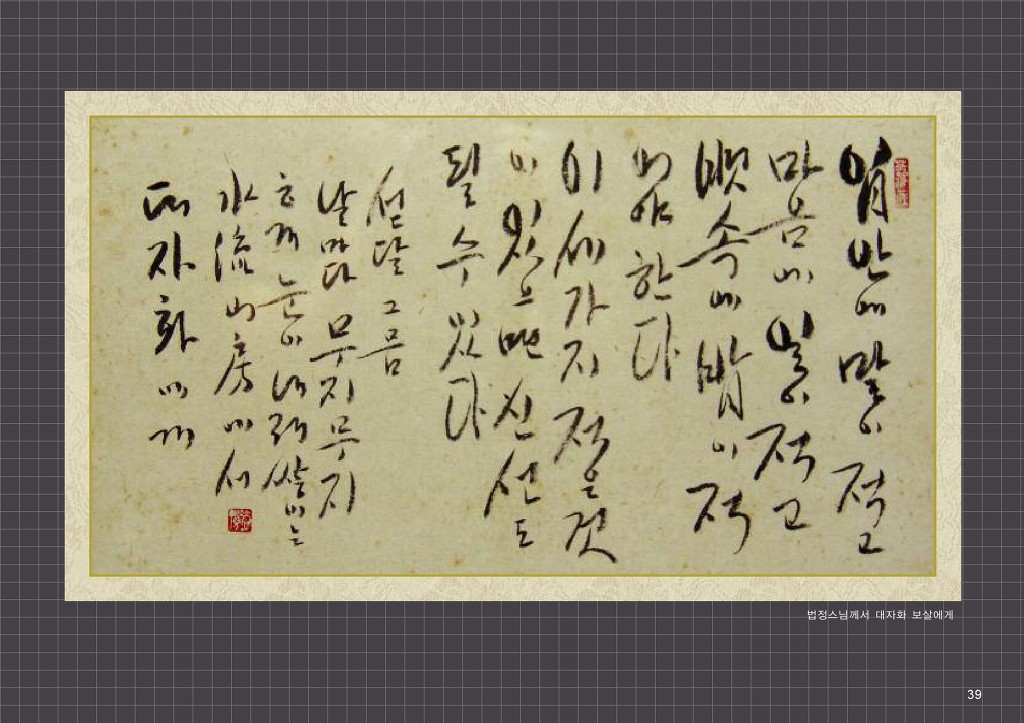 입안에 말이 적고
마음에 일이 적고
뱃속에 밥이 적
어야 한다
이 세가지 적은 것
이 있으면 신선도
될 수 있다
섣달 그믐
날마다 무지무지
하게 눈이 내려 쌓이는
水流山房에서
대자화에게
법정스님께서 대자화 보살에게
39